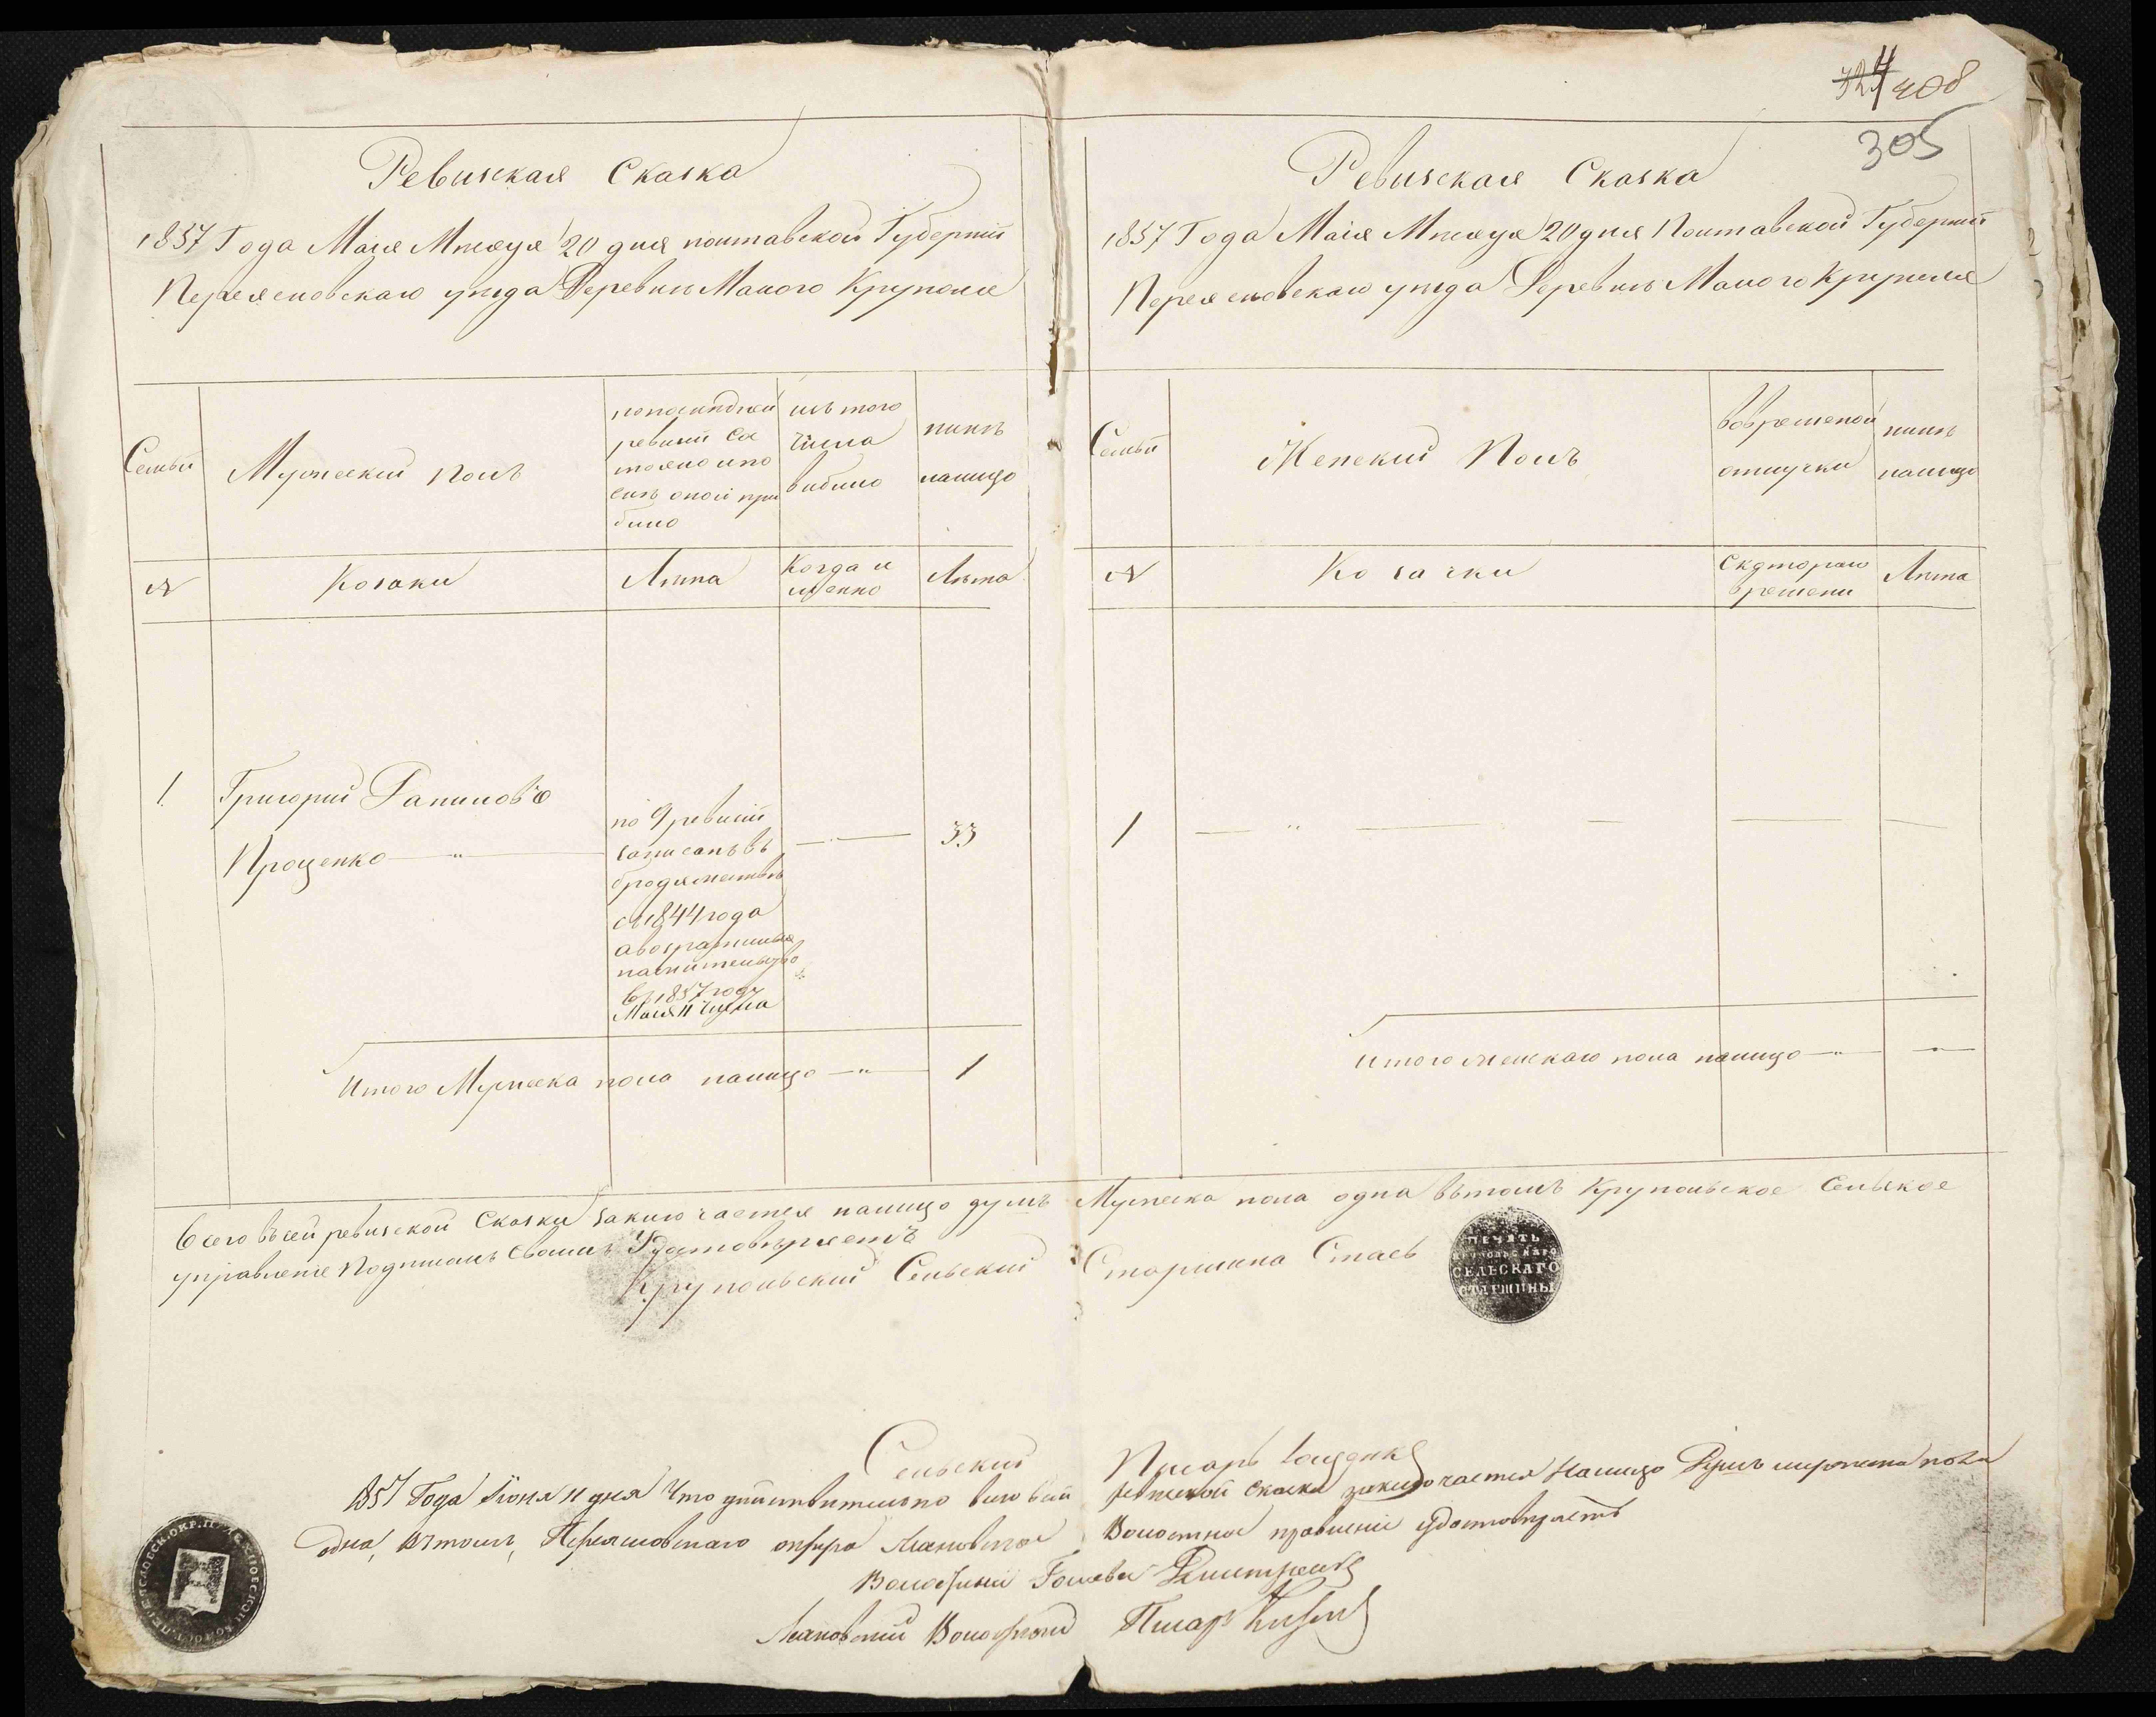 324 408
305
Ревизская Сказка
1857 Года Маія Мѣсяца 20 дня полтавской Губерніи
Переясловскаго уѣзда Деревни Малого Круполя
Семьи
Мужеский полъ
попослѣдней
ревизіи со
тояло ипо
слѣ оной при
было
изъ того
числа
выбыло
нынѣ
налицо
№
Козаки
Лѣта
Когда и
менно
Лѣта
1
Григорий Даниловъ
Проценко
по 9 ревизіи
записанъ въ
бродяжествѣ
съ 1844 года
авозратился
нажительство
въ 1857 году
Маія 11 числа
33
Итого Мужеска пола налицо 1
Ревизская Сказка
1857 Года Маія Мѣсяца 20 дня Полтавской Губерніи
Переясловскаго уѣзда Деревни Малого Круполя
Семьи
Женский Полъ
вовременой
отлучки
нынѣ
налицо
№
Козачки
Скотораго
времени
Лѣта
1
Итого женскаго пола налицо
Всего въсей ревизской Сказки заключается налицо душъ Мужеска пола одна вътомъ Крупольское Сельское
управленіе Подписомъ Своимъ Удостовѣряетъ
Крупольский Сельский Старшина Стась
ПЕЧАТЬ
КРУПОЛЬСКАГО
СЕЛЬСКАГО
СТАРШИНЫ
Сельский Писарь
1857 Года Іюня 11 дня Что дѣйствительно всего въ сей ревизской сказки заключается Налицо Душъ мужеска пола
одна, Вътомъ, Переясловскаго округа Волостное правленіе удостовѣряетъ
Волостный Голова Дмитренко
Волостной Писарь